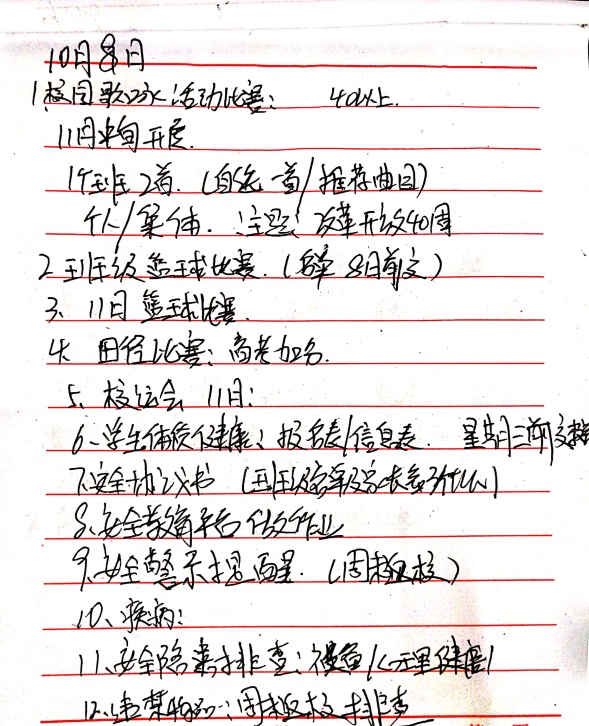 10月8日
1校园歌咏活动比赛: 40以上.
11月中旬开展.
1个班2首.(自选一首/推荐曲目)
个人/集体. 主题: 改革开放40周
2 班级篮球比赛.(名单 8日前交)
3、11日篮球比赛.
4. 田径比赛: 高考加分.
5. 校运会 11日:
6、学生体质健康: 报名表/信息表. 星期三前交
7.安全协议书 (班级
8、安全教育平台 作业
9、安全警示提醒.(周末返校)
10、疾病:
11、安全隐患排查: /心理健康
12、违禁物品: 周末返校排查